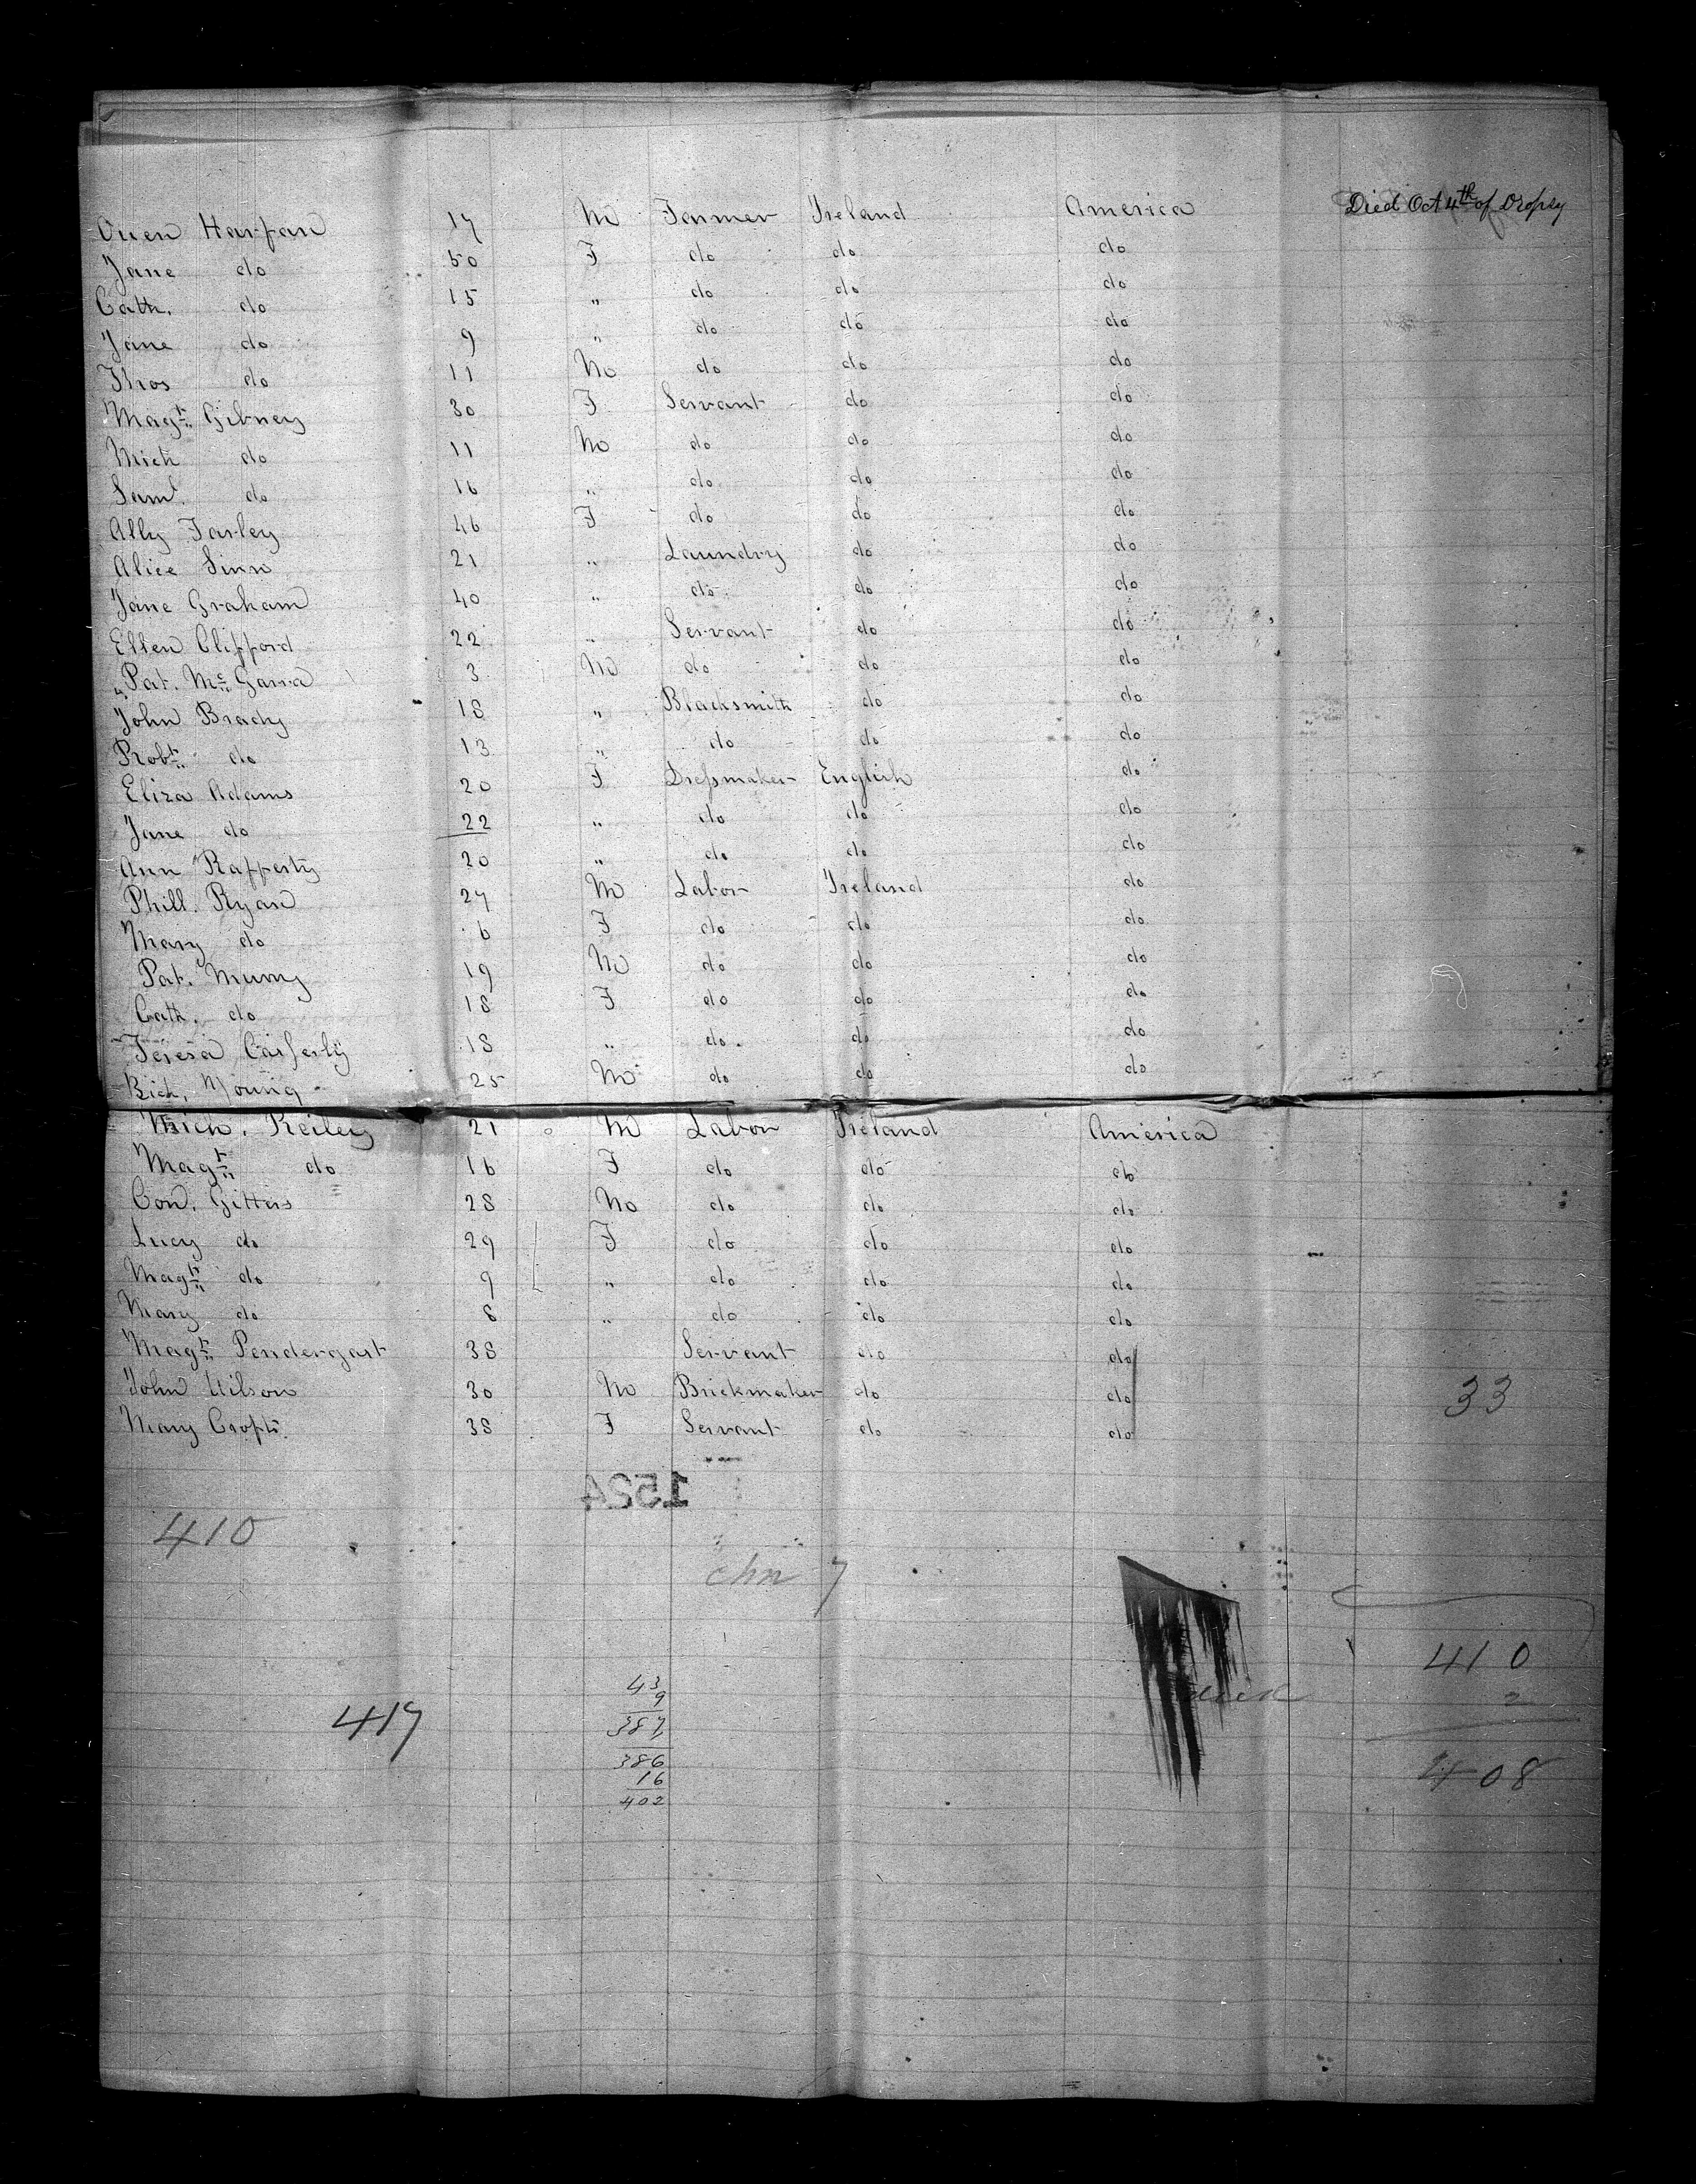 Owen Harpan 17 M Farmer Ireland America Died Oct 4th of Dropsy
Jane do 50 F do do do
Cath. do 15 " do do do
Jane do 9 " do do do
Thos do 11 M do do do
Magt. Gibney 30 F Servant do do
Mich do 11 M do do do
Saml. do 16 " do do do
Ally Farley 46 F do do do
Alice Sinn 21 " Laundry do do
Jane Graham 40 " do do do
Ellen Clifford 22 " Servant do do
Pat. Mc Garra 3 M do do do
John Brady 18 " Blacksmith do do
Robt. do 13 " do do do
Eliza Adams 20 F Dressmaker English do
Jane do 22 " do do do
Ann Rafferty 20 " do do do
Phill. Ryan 27 M Labor Ireland do
Mary do 6 F do do do
Pat. Murry 19 M do do do
Cath. do 18 F do do do
Teresa 18 " do do do
Rich. Young 25 M do do do
Mich. Reiley 21 M Labor Ireland America
Magt. do 16 F do do do
Con. Gitters 28 M do do do
Lucy do 29 F do do do
Magt. do 9 " do do do
Mary do 8 " do do do
Magt. Pendergast 38 Servant do do
John Wilson 30 M Brickmaker do do 33
Mary Crofts 38 F Servant do do
1524
410
chn 7
410
2
408
417
43
9
387
386
16
402